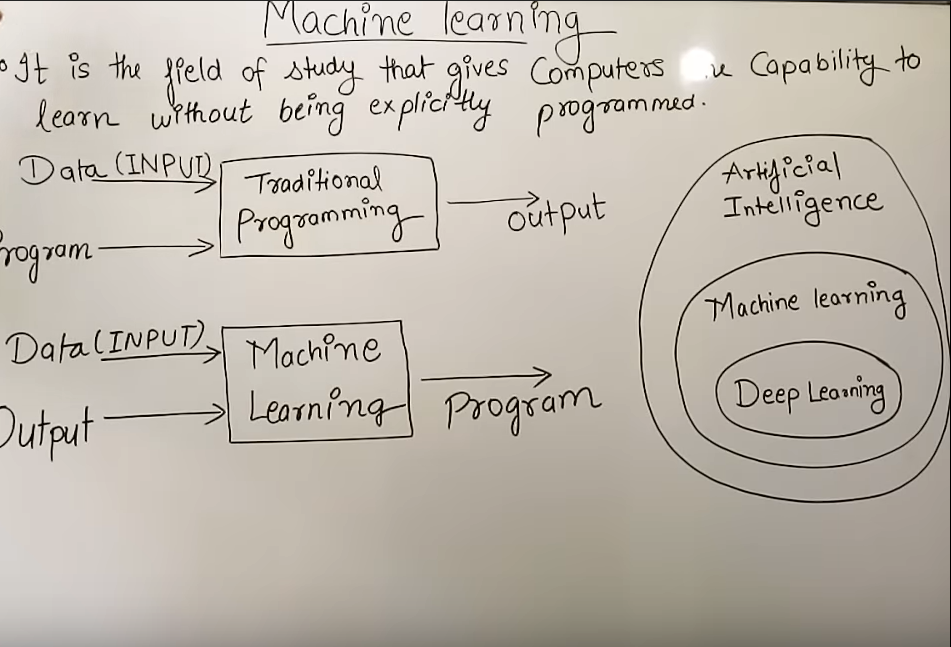 Machine learning
It is the field of study that gives Computers Capability to
learn without being explicitly programmed.
Data (INPUT)
Traditional
Programming
output
rogram
Data (INPUT)
Machine
Learning
Program
Output
Artificial
Intelligence
Machine learning
Deep Learning